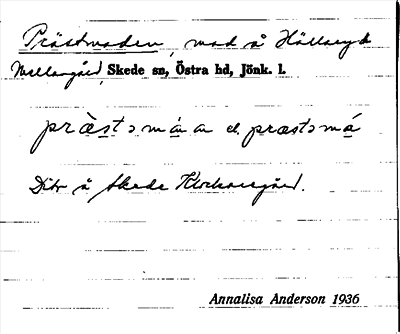 Prästmaden, mad å Hällaryd
Mellangård, Skede sn, Östra hd, Jönk. l.
præ̀stɔmáa el. præstɔmá
Dito å Skede Klockaregård.
Annalisa Anderson 1936